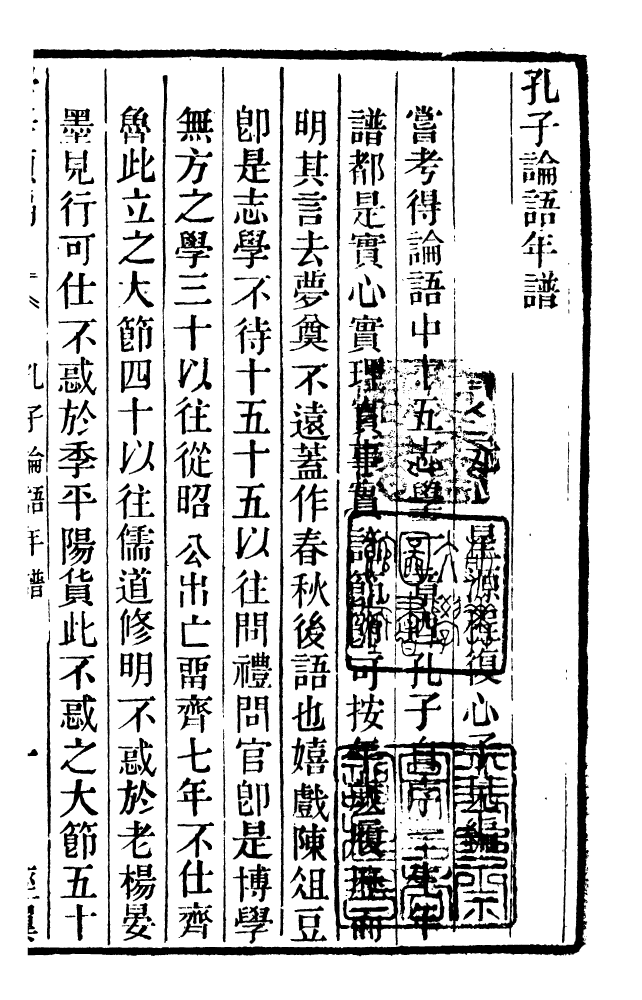 孔子論語年譜
星源程復心子見編
嘗考得論語中十五志學一章迺孔子自序一生年
譜都是實心實理實事實請節節可按年歲履歷而
明其言去夢奠不遠蓋作春秋後語也嬉戲陳俎豆
卽是志學不待十五十五以往問禮問官卽是博學
無方之學三十以往從昭公出亡畱齊七年不仕齊
魯此立之大節四十以往儒道修明不惑於老楊晏
墨見行可仕不惑於季平陽貨此不惑之大節五十
孔子論語年譜
一